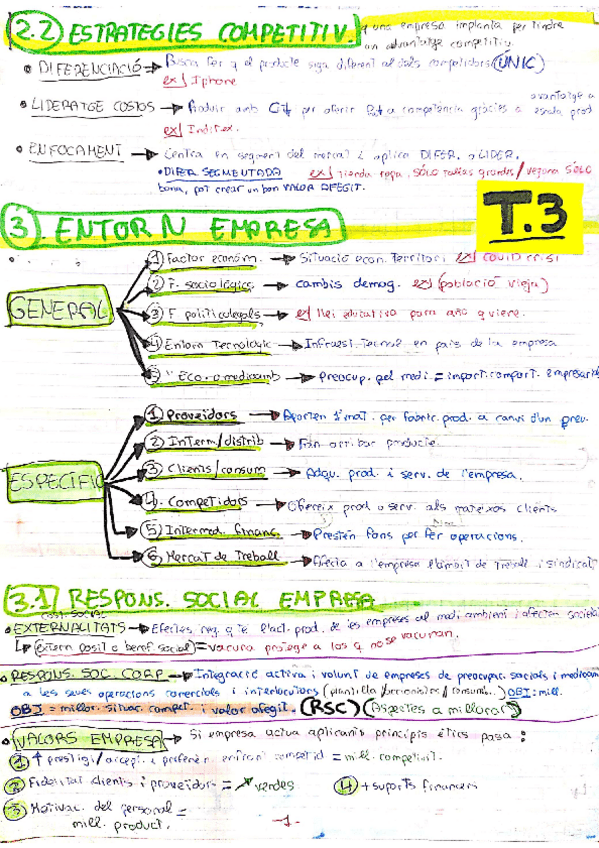 2.2 ESTRATEGIES COMPETITIV. q una empresa implanta per tindre
un advantatge competitiu.
• DIFERENCIACIÓ → Busca fer q el producte siga diferent al dels competidors (ÚNIC)
ex/ Iphone
• LIDERATGE COSTOS → Produir amb per oferir a competència gràcies a avantatge a escala prod
ex/ Inditex.
• ENFOCAMENT → Centra en segment del mercat i aplica DIFER. o LIDER.
• DIFER SEGMENTADA ex/ tienda ropa SÓLO tallas grandes / vegana SÓLO
bona, pot crear un bon VALOR AFEGIT.
T.3
3. ENTORN EMPRESA
GENERAL
1) Factor econòm. → Situació econ. territori ex/ COVID crisi
2) F. sociològics → cambis demog. ex/ (població vieja)
3) F politicolegals → ex/ llei educativa para año q viene.
4) Entorn Tecnologic → Infraest. Tecnol en pais de la empresa
5) " Eco. o medioamb → preocup. pel medi = import. comport. empresarial
ESPECÍFIC
1) Proveidors → Aporten 1ª mat. per fabric. prod. a canvi d'un preu.
2) Interm/distrib → Fan arribar producte.
3) Clients/consum → Adqu. prod. i serv. de l'empresa.
4. Competidors → Ofereix prod o serv. als mateixos clients
5) Intermed. financ. → Presten fons per fer operacions.
6) Mercat de Treball → Afecta a l'empresa l'àmbit de treball i sindicat
3.1 RESPONS. SOCIAL EMPRESA
cost. social
• EXTERNALITATS → Efectes neg. q té l'act. prod. de les empreses al medi ambient i afecten societat
↳ extern posit o benef social) = vacuna protege a los q no se vacunan.
• RESPONS. SOC. CORP → Integració activa i volunt de empreses de preocupac. socials i medioam
a les seues operacions comercials i interlocutors (plantilla / accionistes / consum..) OBJ: mill.
OBJ = millor. situac. compet. i valor afegit. (RSC) (Aspectes a millorar)
• VALORS EMPRESA → Si empresa activa aplicant principis ètics passa:
1) ↑ prestigi/accep. i preferèn enfront competid = mill. competivit.
2) Fidelitat clients i proveidors = ↗ vendes 4) + suports financers
3) Motivac. del personal =
mill. product.
-1-